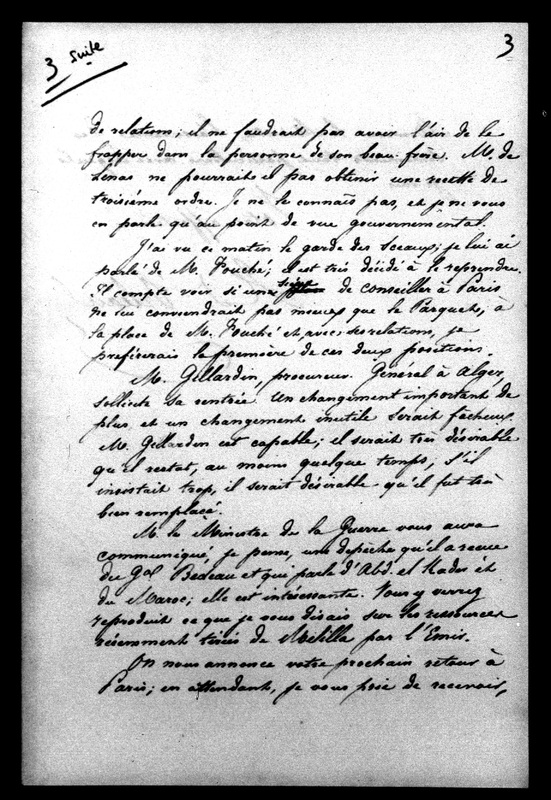 3 suite
3
de relations; il ne faudrait pas avoir l'air de le
frapper dans la personne de son beau-frère. M. de
ne pourrait il pas obtenir une recette de
troisième ordre. Je ne le connais pas, et je ne vous
en parle qu'au point de vue gouvernemental.
J'ai vu ce matin le garde des sceaux; je lui ai
parlé de M. Fouché; il est très décidé à le reprendre.
Il compte voir si une siège de conseiller à Paris
ne lui conviendrait pas mieux que le Parquet, à
la place de M. Fouché et, avec ses relations, je
préfèrerais la première de ces deux positions.
M. Gillardin, procureur Général à Alger,
sollicite sa rentrée. Un changement important de
plus et un changement inutile serait facheux.
M. Gillardin est capable; il serait très désirable
qu'il restat, au moins quelque temps; s'il
insistait trop, il serait désirable qu'il fut très
bien remplacé.
M. le Ministre de la Guerre vous aura
communiqué, je pense, une dépèche qu'il a reçue
du Gal Bedeau et qui parle d'Abd. el Kader et
du Maroc; elle est intéressante. Vous y verrez
reproduit ce que je vous disais sur les ressources
récemment tirées de Melilla par l'Emir.
On nous annonce votre prochain retour à
Paris; en attendant, je vous prie de recevoir,